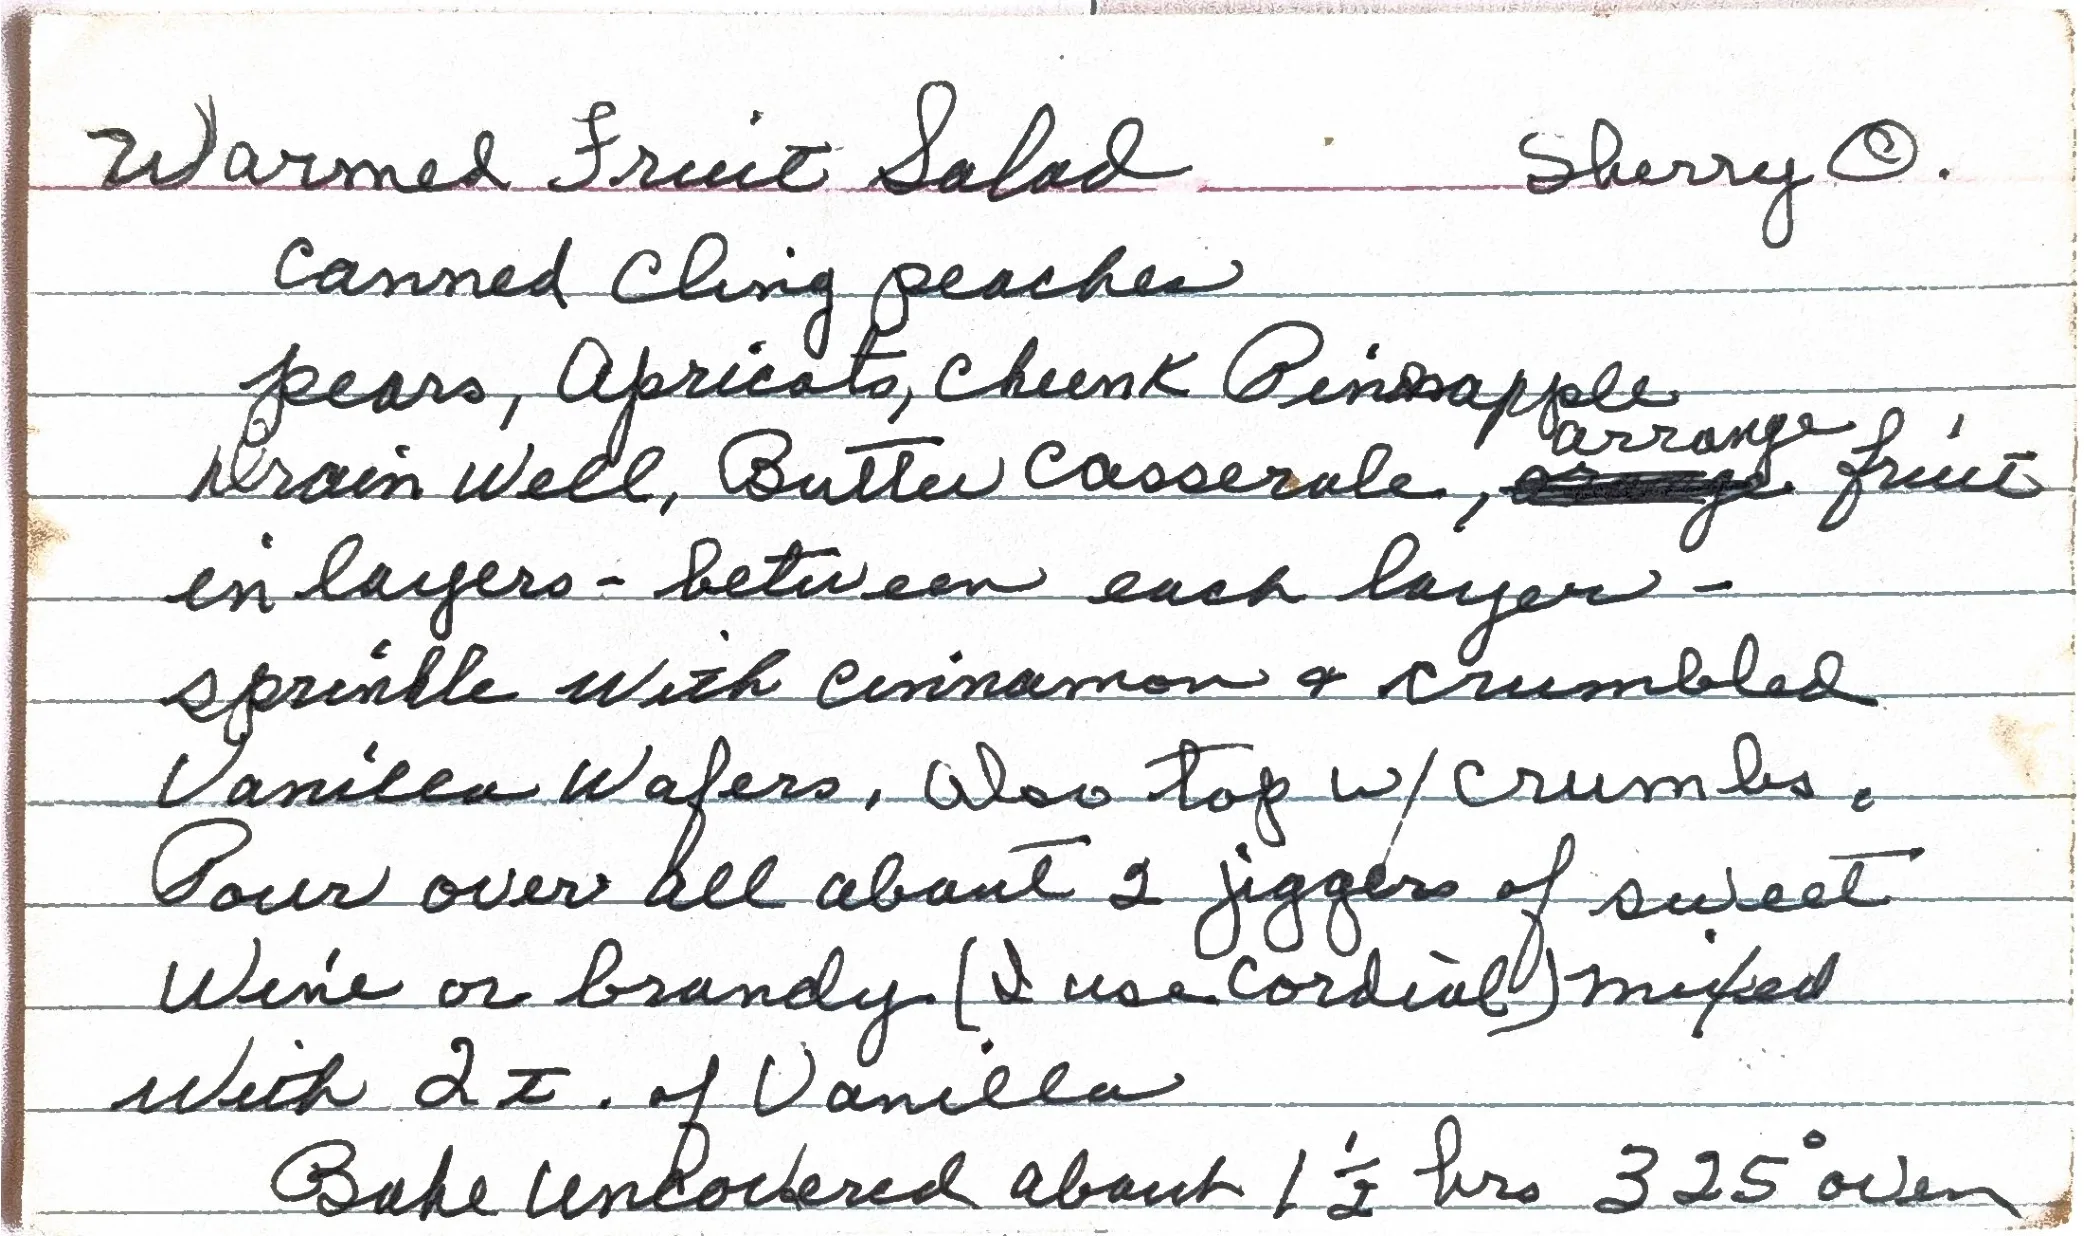 Warmed Fruit Salad Sherry O.
Canned Cling peaches
pears, Apricots, Chunk Pineapple
Drain Well, Butter Casserole, arrange fruit
in layers - between each layer -
sprinkle with cinnamon & crumbled
Vanilla Wafers. Also top w/ crumbs.
Pour over all about 2 jiggers of sweet
Wine or brandy (I use Cordial) mixed
with 2 t. of Vanilla
Bake uncovered about 1 1/2 hrs 325° oven